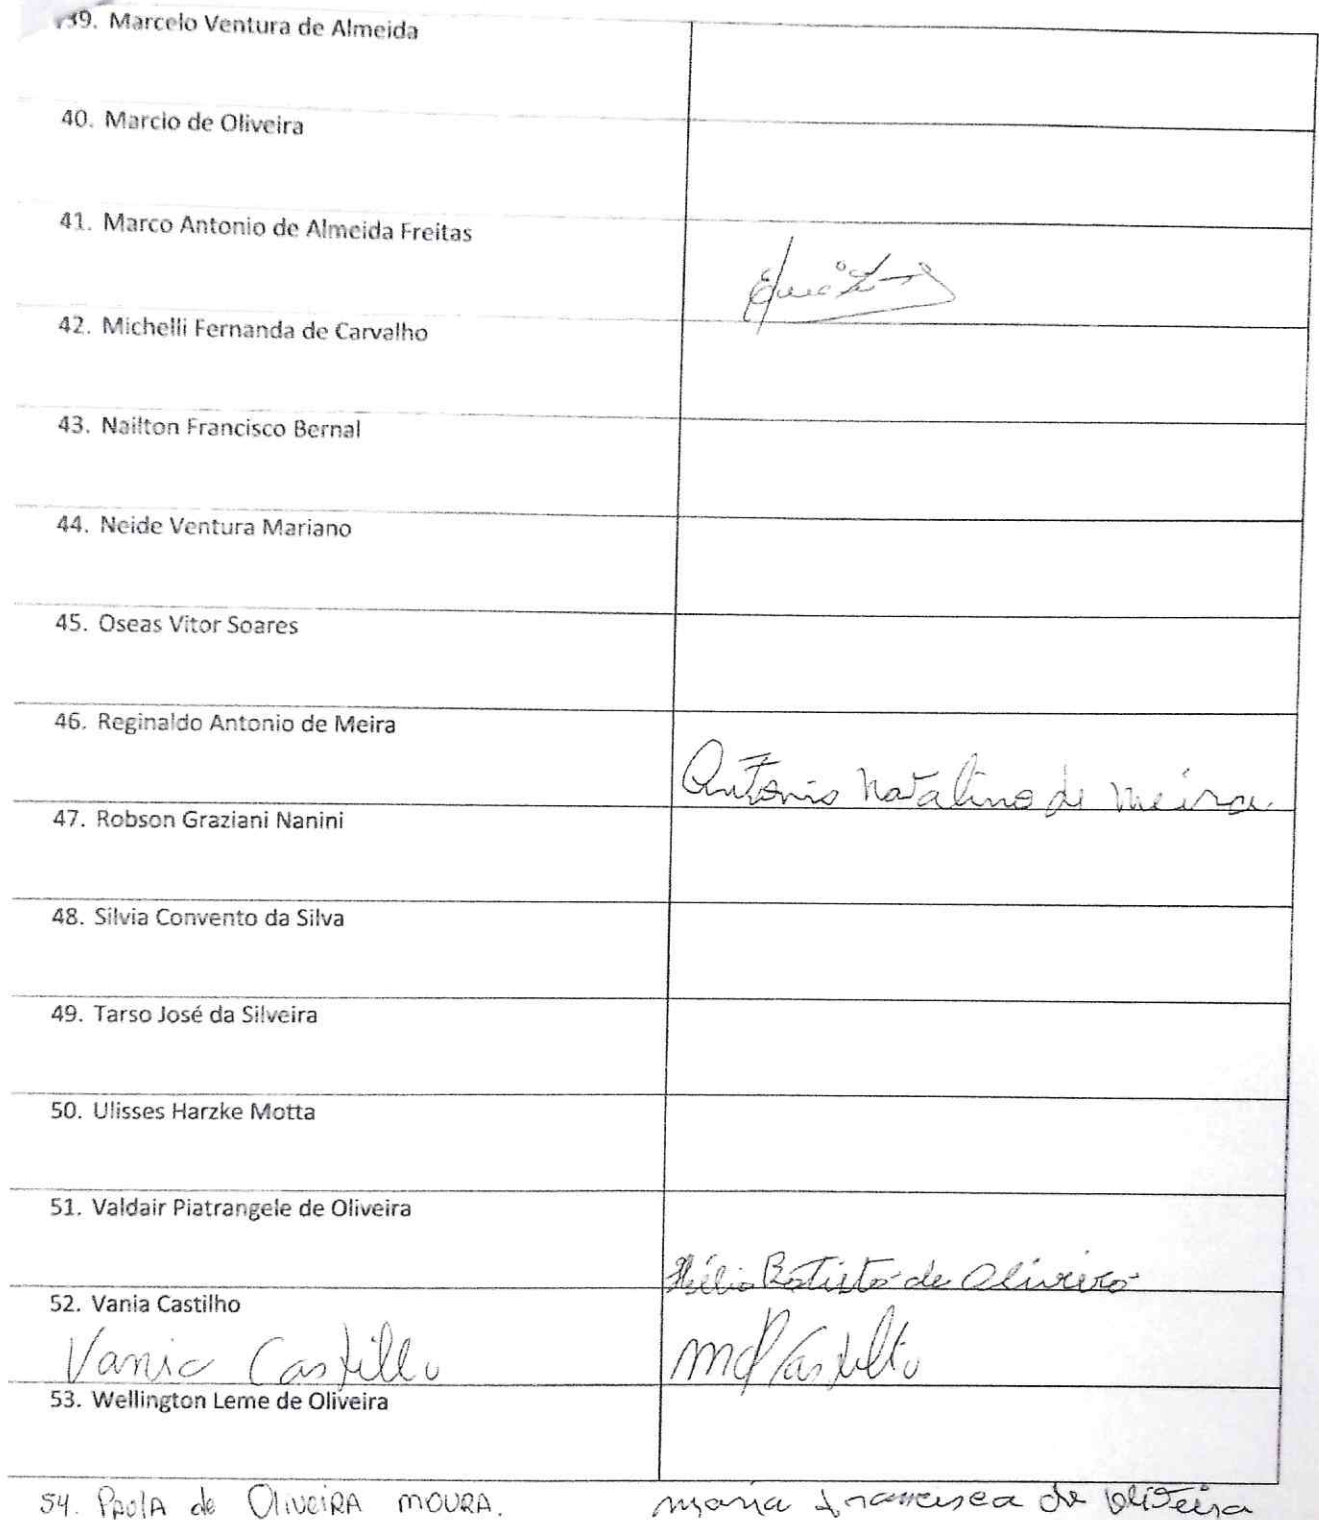 39. Marcelo Ventura de Almeida
40. Marcio de Oliveira
41. Marco Antonio de Almeida Freitas
42. Michelli Fernanda de Carvalho
43. Nailton Francisco Bernal
44. Neide Ventura Mariano
45. Oseas Vitor Soares
46. Reginaldo Antonio de Meira
Antonio Natalino de Meira
47. Robson Graziani Nanini
48. Silvia Convento da Silva
49. Tarso José da Silveira
50. Ulisses Harzke Motta
51. Valdair Piatrangele de Oliveira
Hélio Batista de Oliveira
52. Vania Castilho
Vania Castilho
53. Wellington Leme de Oliveira
54. PAOLA de OliveiRA MOURA. Maria Francisca de Oliveira